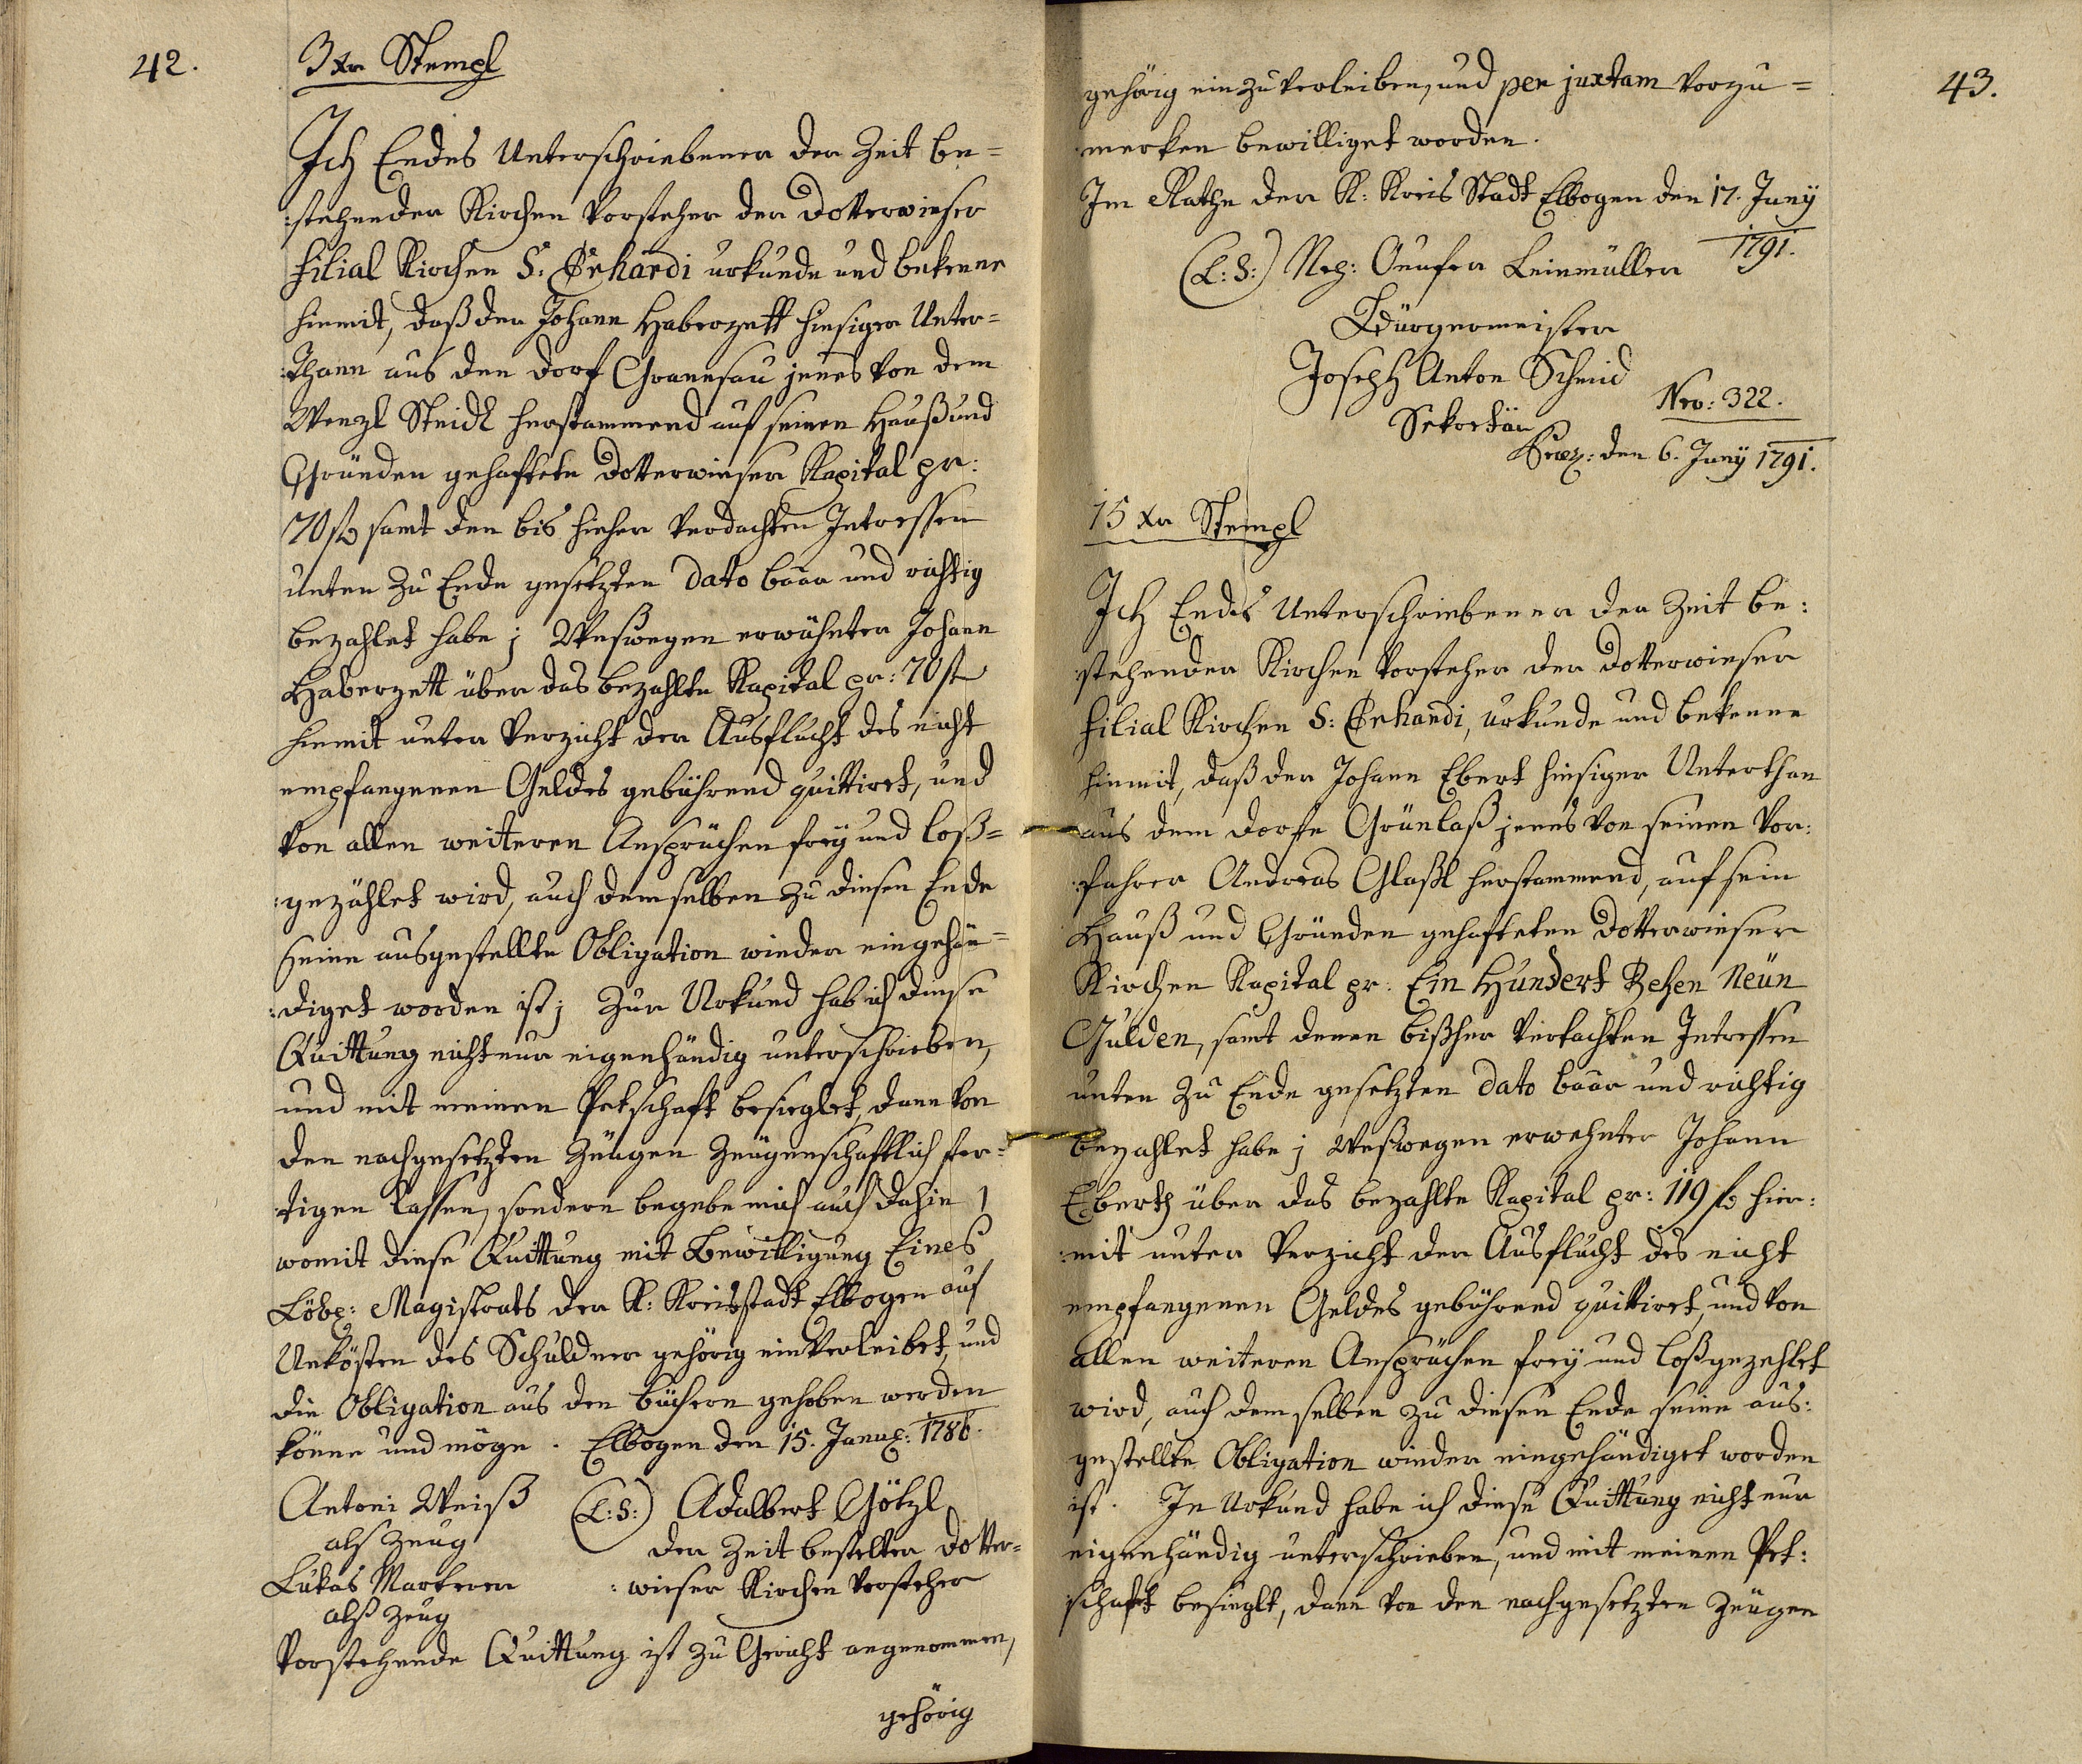 42.
3 xr Stempl
Ich Endes Unterschriebener der Zeit be=
:stehender Kirchen Vorsteher der Dotterwieser
Filial Kirchen S: Erhardi urkunde und bekenne
hiemit, daß der Johann Haberzett hiesiger Unter=
:thann aus den Dorf Granesau jenes von dem
Wenzl Steidl herstammend auf seinen Hauß und
Gründen gehaftete Dotterwieser Kapital pr:
70 fl samt den bis hieher verdachten Intressen
unten zu Ende gesetzten Dato baar und richtig
bezahlet habe; Weßwegen erwähnter Johann
Haberzett über das bezahlte Kapital pr: 70 fl
hiemit unter Verzicht der Ausflucht des nicht
empfangenen Geldes gebührend quittiret, und
von allen weiteren Ansprüchen frey und loß=
:gezählet wird, auch demselben zu diesen Ende
seine ausgestellte Obligation wieder eingehän=
:diget worden ist; Zur Urkund hab ich diese
Quittung nicht nur eigenhändig unterschrieben,
und mit meinen Petschaft besieglet, dann von
den nachgesetzten Zeugen Zeugenschaftlich fer=
:tigen lassen, sondern begebe mich auch dahin
womit diese Quittung mit Bewilligung Eines
Löbl: Magistrats der K: Kreisstadt Elbogen auf
Unkösten des Schuldner gehörig einverleibet, und
die Obligation aus den Büchern gehoben werden
könne und möge. Elbogen den 15. Januar: 1786.
Antoni Weiß (L:S:) Adalbert Götzl
als Zeug der Zeit bestelter Dotter=
Lukas Markerer :wieser Kirchen Vorsteher
alß Zeug
Vorstehende Quittung ist zu Gericht angenommen,
gehörig
43.
gehörig einzuverleiben, und per juxtam vorzu=
:merken bewilliget worden.
Im Rathe der K: Kreis Stadt Elbogen den 17. Juny
1791.
(L:S:) Onufer Leinmüller
Bürgermeister
Joseph Anton Schmid
Sekretär
Nro: 322.
Præs: den 6. Juny 1791.
15 xr Stempl
Ich Endes Unterschriebener der Zeit be:
:stehender Kirchen Vorsteher der Dotterwieser
Filial Kirchen S: Erhardi, urkunde und bekenne
hiemit, daß der Johann Ebert hiesiger Unterthan
aus dem Dorfe Grünlaß jenes von seinen Vor:
:fahrer Andreas Glaßl herstammend, auf sein
Hauß und Gründen gehafteten Dotterwieser
Kirchen Kapital pr: Ein Hundert Zehen Neün
Gulden, samt denen bißher vertachten Intressen
unten zu Ende gesetzten Dato baar und richtig
bezahlet habe; Weßwegen erwehnter Johann
Eberth über das bezahlte Kapital pr: 119 fl hier:
:mit unter Verzicht der Ausflucht des nicht
empfangenen Geldes gebührend quittiret, und von
allen weiteren Ansprüchen frey und loßgezehlet
wird, auch demselben zu diesen Ende seine aus:
gestellte Obligation wieder eingehändiget worden
ist. In Urkund habe ich diese Quittung nicht nur
eigenhändig unterschrieben, und mit meinen Pet:
schaft besieglt, dann von den nachgesetzten Zeugen